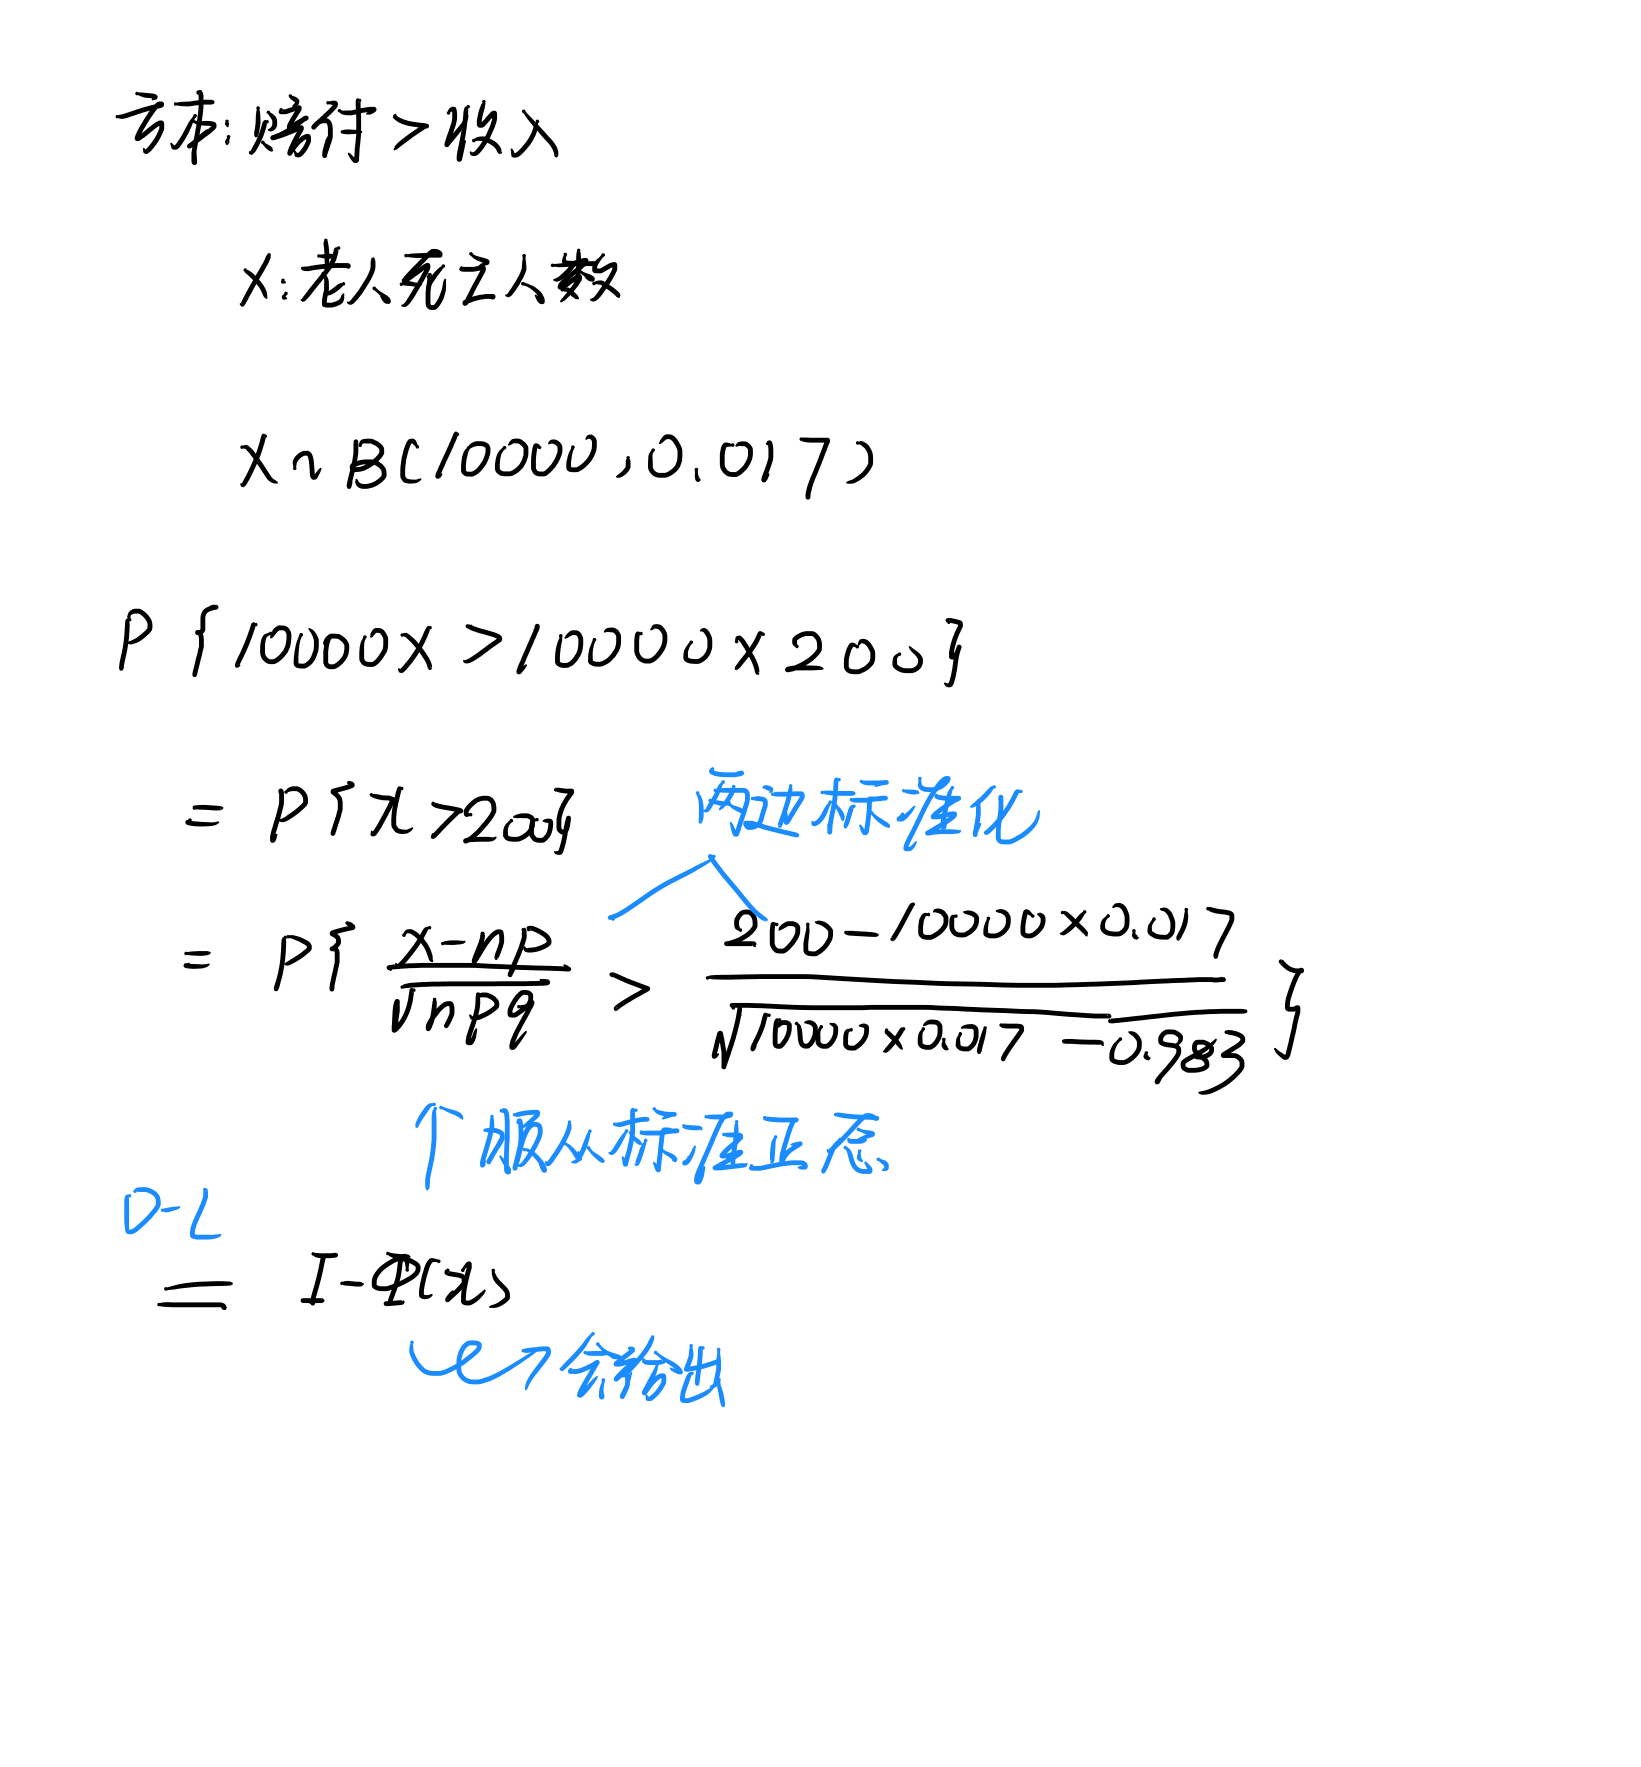 亏本:赔付>收入
X:老人死亡人数
X~B(10000,0.017)
P{10000X>10000×200}
=P{x>200}
两边标准化
=P{(X-np)/√npq > (200-10000×0.017)/√(10000×0.017-0.983)}
↑服从标准正态
D-L
= 1-Φ(x)
会给出